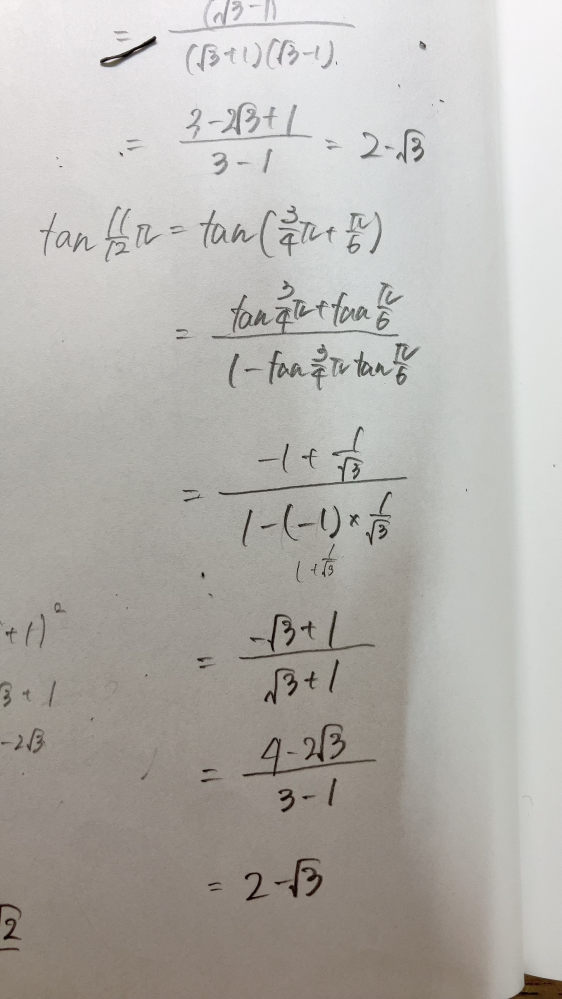 = (√3-1) / (√3+1)(√3-1)
= 3-2√3+1 / 3-1 = 2-√3
tan 11/12 π = tan(3/4 π + π/6)
= tan 3/4 π + tan π/6 / 1 - tan 3/4 π tan π/6
= -1 + 1/√3 / 1-(-1)×1/√3
1+1/√3
+1)²
= -√3+1 / √3+1
3+1
-2√3
= 4-2√3 / 3-1
= 2-√3
√2